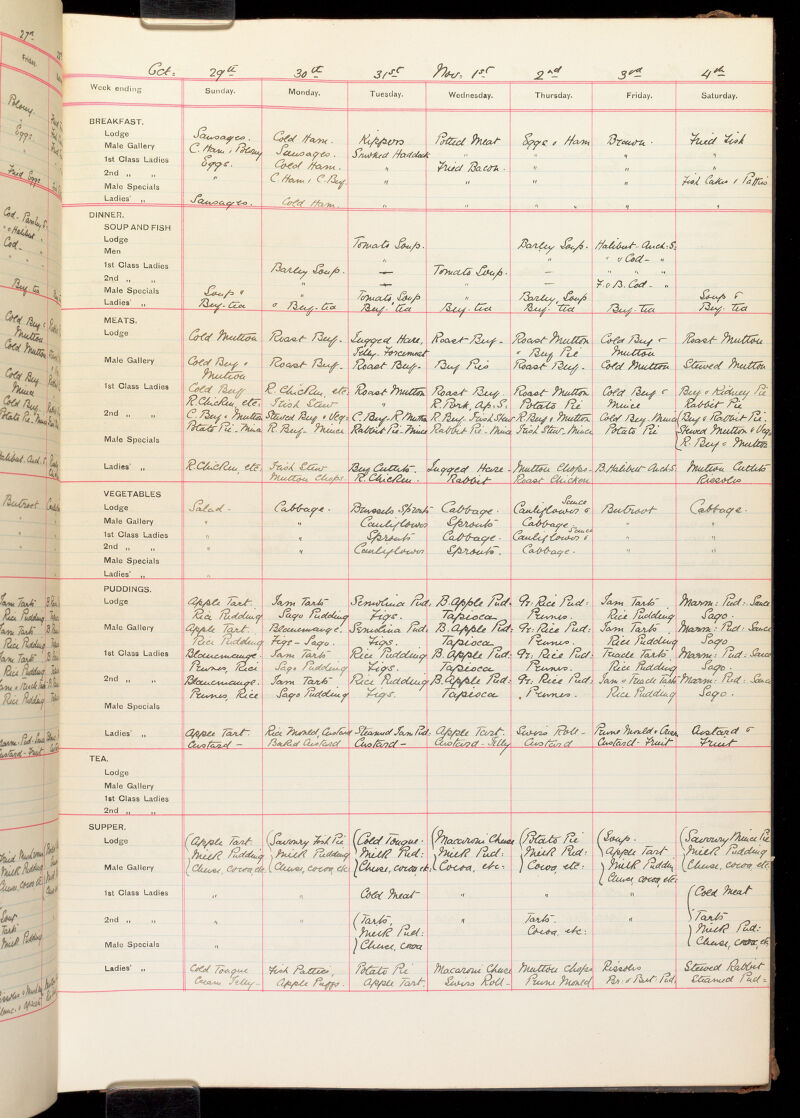 27th
Friday.
Polony
Eggs
Fried Eggs
Cod. Parsley S.
" " Halibut "
Cod.
Beef-tea
Cold Beef &
Mutton
Cold Mutton
Cold Beef &
Mince
Cold Beef,
Potato Pie. Mince
Halibut. Anch: S.
Beetroot
Jam Tarts
Rice Pudding
Jam Tarts
Rice Pudding
Jam Tarts
Rice Pudding
Rice Pudding
Fried Mushrooms
Milk Pudding
Cheese, cocoa etc
Soup
Tarts
Milk Pudding
Oct: 29th 30th 31st Nov. 1st 2nd 3rd 4th
Week ending Sunday. Monday. Tuesday. Wednesday. Thursday. Friday. Saturday.
BREAKFAST.
Lodge Sausages. Cold Ham. Kippers Potted Meat Eggs & Ham Brawn. Fried Fish
Male Gallery C. Ham & Polony Sausages. Smoked Haddock " " " "
1st Class Ladies Eggs. Cold Ham. " Fried Bacon. " " "
2nd " " " C. Ham & C. Beef. " " " " Fish Cakes & Patties
Male Specials
Ladies' " Sausages. Cold Ham. " " " " "
DINNER.
SOUP AND FISH
Lodge Tomato Soup. Barley Soup. Halibut. Anch: S.
Men " " " & Cod - "
1st Class Ladies Barley Soup. — Tomato Soup. — " " "
2nd " " " — " — F. & B. Cod - "
Male Specials Soup & " Tomato Soup " Barley Soup Soup &
Ladies' " Beef-tea & Beef-tea Beef-tea Beef-tea Beef-tea Beef-tea Beef-tea
MEATS.
Lodge Cold Mutton Roast Beef. Jugged Hare, Roast Beef. Roast Mutton Cold Beef & Roast Mutton
Jelly. Forcemeat " Beef Pie Mutton
Male Gallery Cold Beef & Roast Beef. Roast Beef. Beef Pies Roast Beef. Cold Mutton Stewed Mutton
Mutton
1st Class Ladies Cold Beef R. Chicken, etc. Roast Mutton Roast Beef Roast Mutton Cold Beef & Beef & Kidney Pie
R. Chicken, etc. Irish Stew " R. Pork, Ap. S. Potato Pie Mince Rabbit Pie
2nd " " C. Beef & Mutton Stewed Beef & Veg: C. Beef. R. Mutton R. Beef. Irish Stew R. Beef & Mutton Cold Beef. Mince Beef & Rabbit Pie.
Potato Pie. Mince R. Beef. Mince Rabbit Pie. Mince Rabbit Pie. Mince Irish Stew. Mince Potato Pie Stewed Mutton & Veg:
Male Specials R. Beef & Mutton
Ladies' " R. Chicken, etc. Irish Stew Beef Cutlets. Jugged Hare. Mutton Chops. B. Halibut Anch S. Mutton Cutlets
Mutton Chops R. Chicken. Rabbit Roast Chicken Rissoles
VEGETABLES
Lodge Salad. Cabbage. Brussels Sprouts Cabbage. Cauliflower & Sauce Beetroot Cabbage.
Male Gallery " " Cauliflower Sprouts Cabbage " "
1st Class Ladies " " Sprouts Cabbage. Cauliflower & Sauce
2nd " " " " Cauliflower Sprouts. Cabbage. " "
Male Specials
Ladies' " "
PUDDINGS.
Lodge Apple Tart. Jam Tarts Semolina Pud. B. Apple Pud. Gr: Rice Pud: Jam Tarts Marm: Pud: Sauce
Rice Pudding Sago Pudding Figs. Tapioca Prunes. Rice Pudding Sago.
Male Gallery Apple Tart. Blancmange. Semolina Pud. B. Apple Pud: Gr: Rice Pud: Jam Tarts Marm: Pud: Sauce
Rice Pudding Figs - Sago. Figs. Tapioca Prunes. Rice Pudding Sago
1st Class Ladies Blancmange. Jam Tarts Rice Pudding B. Apple Pud: Gr: Rice Pud: Treacle Tarts Marm: Pud: Sauce
Prunes, Rice Sago Pudding Figs. Tapioca Prunes. Rice Pudding Sago.
2nd " " Blancmange. Jam Tarts Rice Pudding B. Apple Pud: Gr: Rice Pud: Jam & Treacle Tarts Marm: Pud: Sauce
Prunes, Rice Sago Pudding Figs. Tapioca Prunes. Rice Pudding Sago.
Male Specials
Ladies' " Apple Tart. Rice Mould, Custard Steamed Jam Pud: Apple Tart. Swiss Roll - Prune Mould & Cream Custard &
Custard - Baked Custard Custard - Custard - Jelly Custard Custard - Fruit Fruit
TEA.
Lodge
Male Gallery
1st Class Ladies
2nd " "
SUPPER.
Lodge Apple Tart Savoury Fish Pie Cold Tongue. Macaroni Cheese Potato Pie Soup. Savoury Mince Pie
Milk Pudding Milk Pudding Milk Pud: Milk Pud: Milk Pud: Apple Tart Milk Pudding
Male Gallery Cheese, cocoa, etc Cheese, cocoa, etc Cheese, cocoa, etc Cocoa, etc: Cocoa, etc: Milk Pudding Cheese, cocoa, etc
Cheese, cocoa, etc:
1st Class Ladies " " Cold Meat " " " Cold Meat
2nd " " " " Tarts, " Tarts. " Tarts
Milk Pud: Cocoa, etc: Milk Pud:
Male Specials " Cheese, cocoa Cheese, cocoa, etc
Ladies' " Cold Tongue Fish Patties, Potato Pie Macaroni Cheese Mutton Chops Rissoles Stewed Rabbit
Cream Jelly - Apple Puffs. Apple Tart. Swiss Roll - Prune Mould Br: & But: Pud. Steamed Pud =